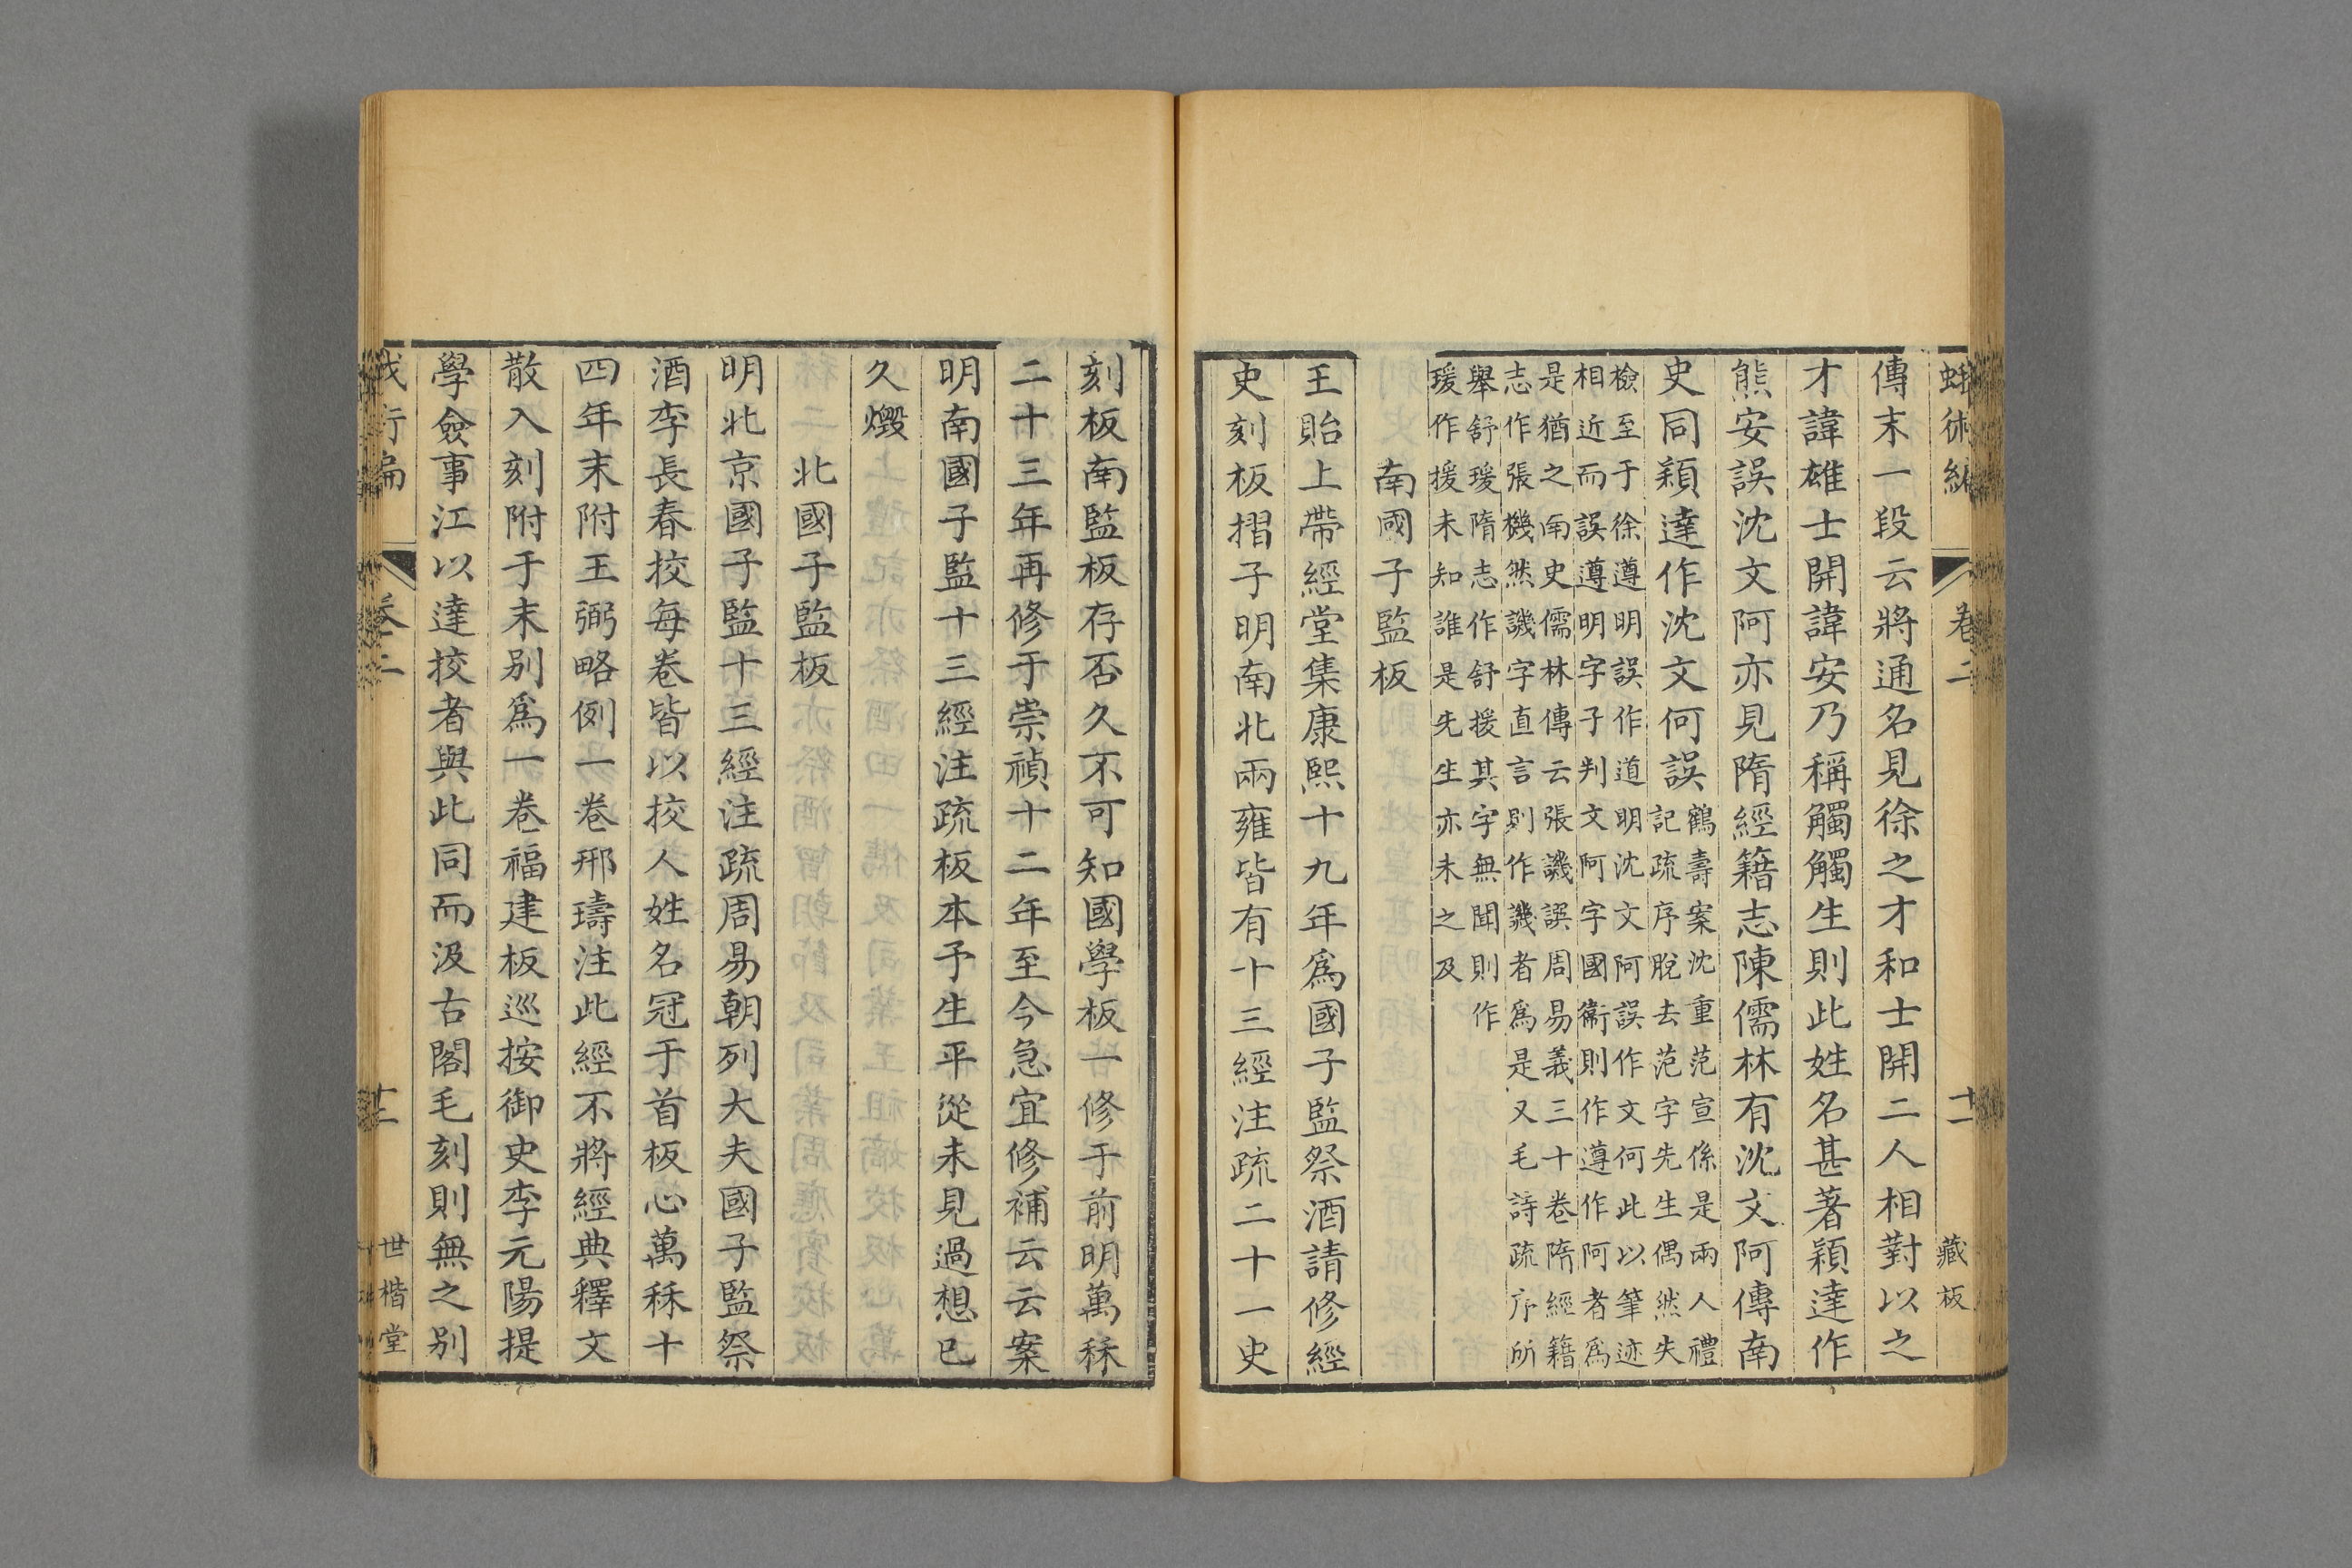 蛾術編 卷二 十二 藏板
傳末一段云將通名見徐之才和士開二人相對以之
才諱雄士開諱安乃稱觸觸生則此姓名甚著穎達作
熊安誤沈文阿亦見隋經籍志陳儒林有沈文阿傳南
史同穎達作沈文何誤
鶴壽案沈重范宣係是兩人禮
記疏序脫去范字先生偶然失
檢至于徐遵明誤作道明沈文阿誤作文何此以筆迹
相近而誤遵明字子判文阿字國衞則作遵作阿者爲
是猶之南史儒林傳云張譏誤周易義三十卷隋經籍
志作張機然譏字直言則作譏者爲是又毛詩疏序所
舉舒瑗隋志作舒援其字無聞則作
瑗作援未知誰是先生亦未之及
南國子監板
王貽上帶經堂集康熙十九年爲國子監祭酒請修經
史刻板摺子明南北兩雍皆有十三經注疏二十一史
刻板南監板存否久不可知國學板一修于前明萬秝
二十三年再修于崇禎十二年至今急宜修補云云案
明南國子監十三經注疏板本予生平從未見過想已
久燬
北國子監板
明北京國子監十三經注疏周易朝列大夫國子監祭
酒李長春挍每卷皆以挍人姓名冠于首板心萬秝十
四年末附王弼略例一卷邢璹注此經不將經典釋文
散入刻附于末别爲一卷福建板巡按御史李元陽提
學僉事江以達挍者與此同而汲古閣毛刻則無之别
卷二 世楷堂